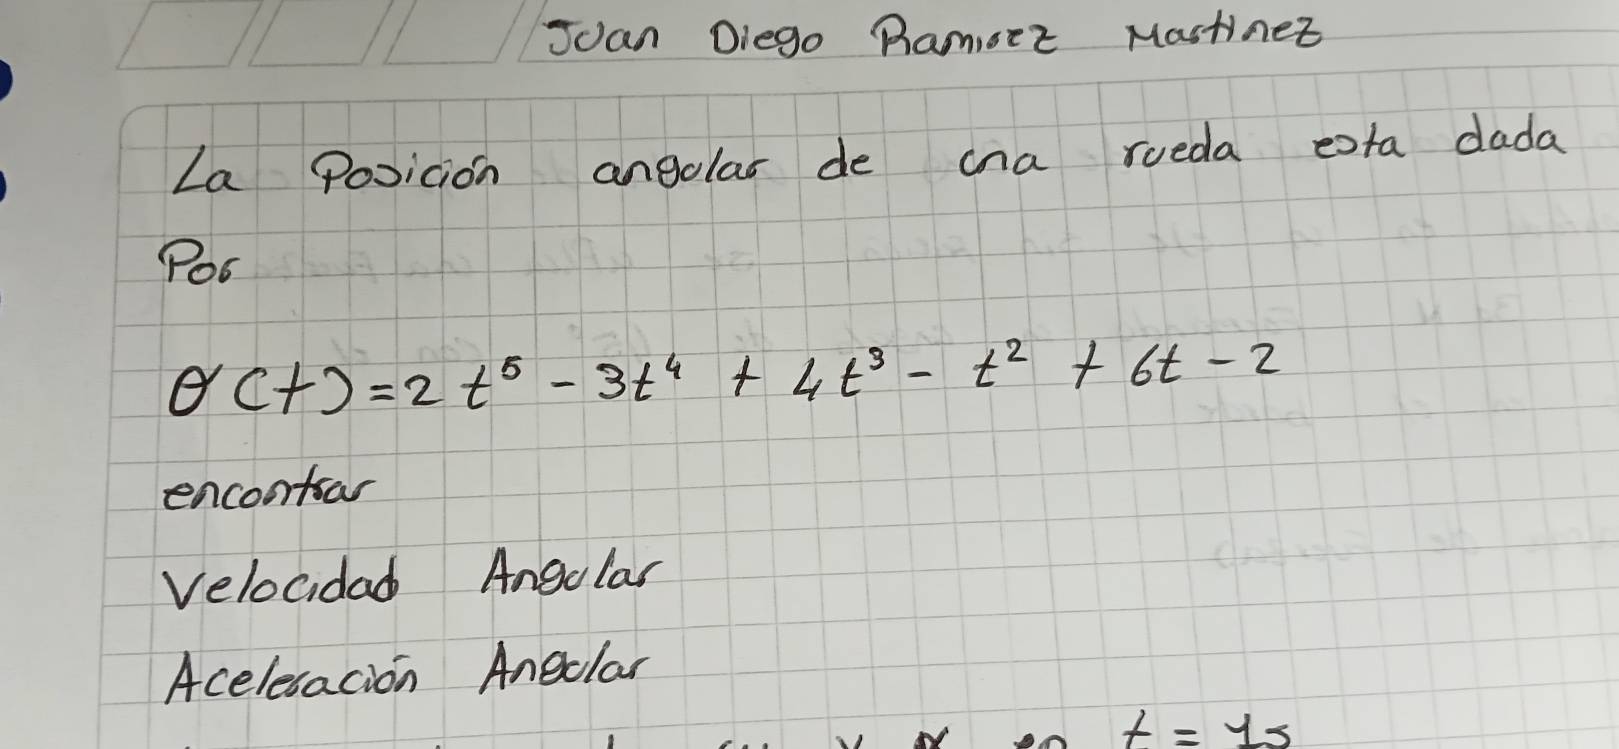 Juan Diego Ramirez Martinez
La Posición angular de una rueda esta dada
Por
θ(t) = 2t⁵ - 3t⁴ + 4t³ - t² + 6t - 2
encontrar
Velocidad Angular
Aceleración Angular
en t = 1s